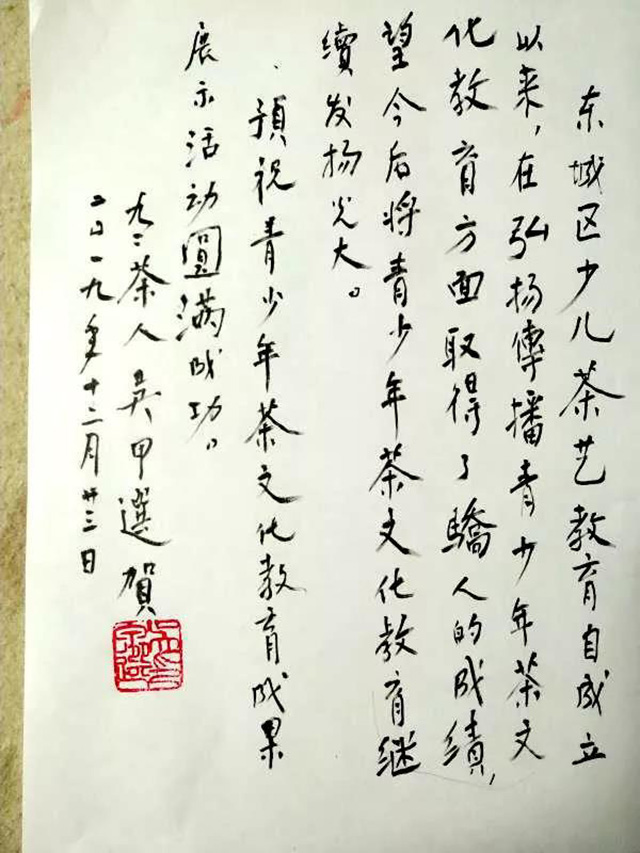 东城区少儿茶艺教育自成立
以来，在弘扬傳播青少年茶文
化教育方面取得了驕人的成績，
望今后将青少年茶文化教育继
續发扬光大。
預祝青少年茶文化教育成果
展示活动圓满成功。
九二茶人吴甲選賀
二〇一九年十二月廿三日